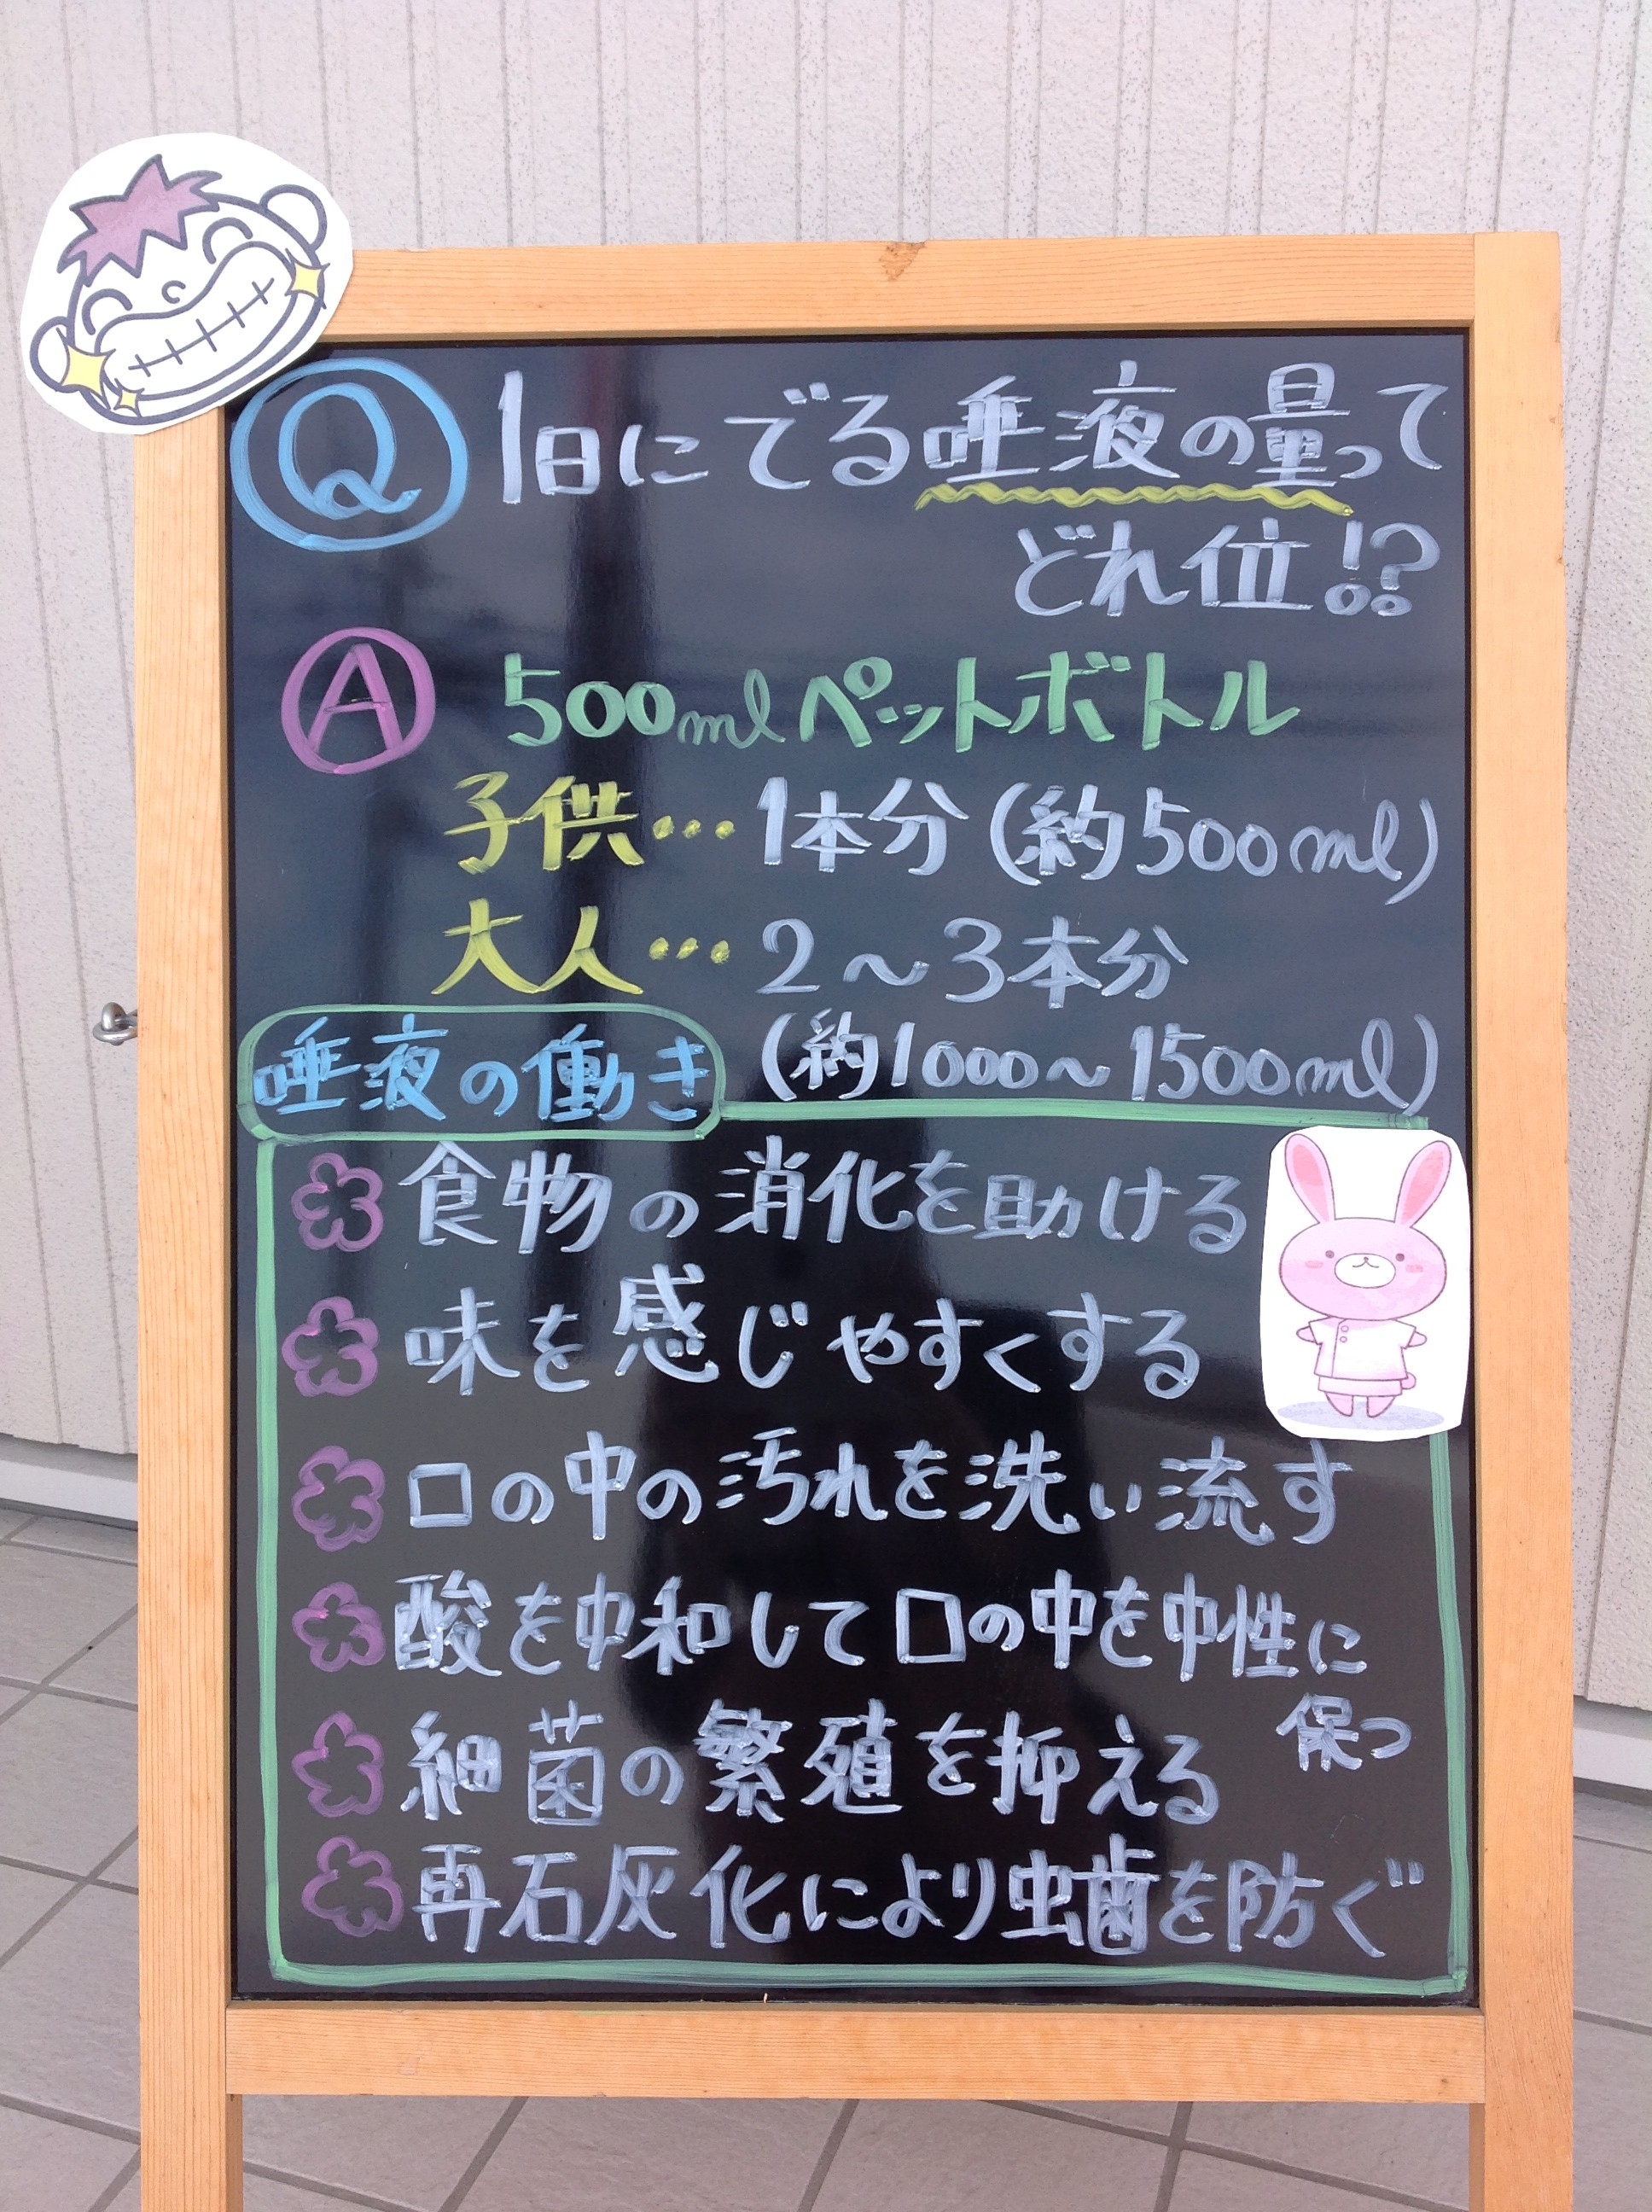 Q 1日にでる唾液の量って
どれ位!?
A 500mlペットボトル
子供…1本分(約500ml)
大人…2～3本分
(約1000～1500ml)
唾液の働き
食物の消化を助ける
味を感じやすくする
口の中の汚れを洗い流す
酸を中和して口の中を中性に
保つ
細菌の繁殖を抑える
再石灰化により虫歯を防ぐ